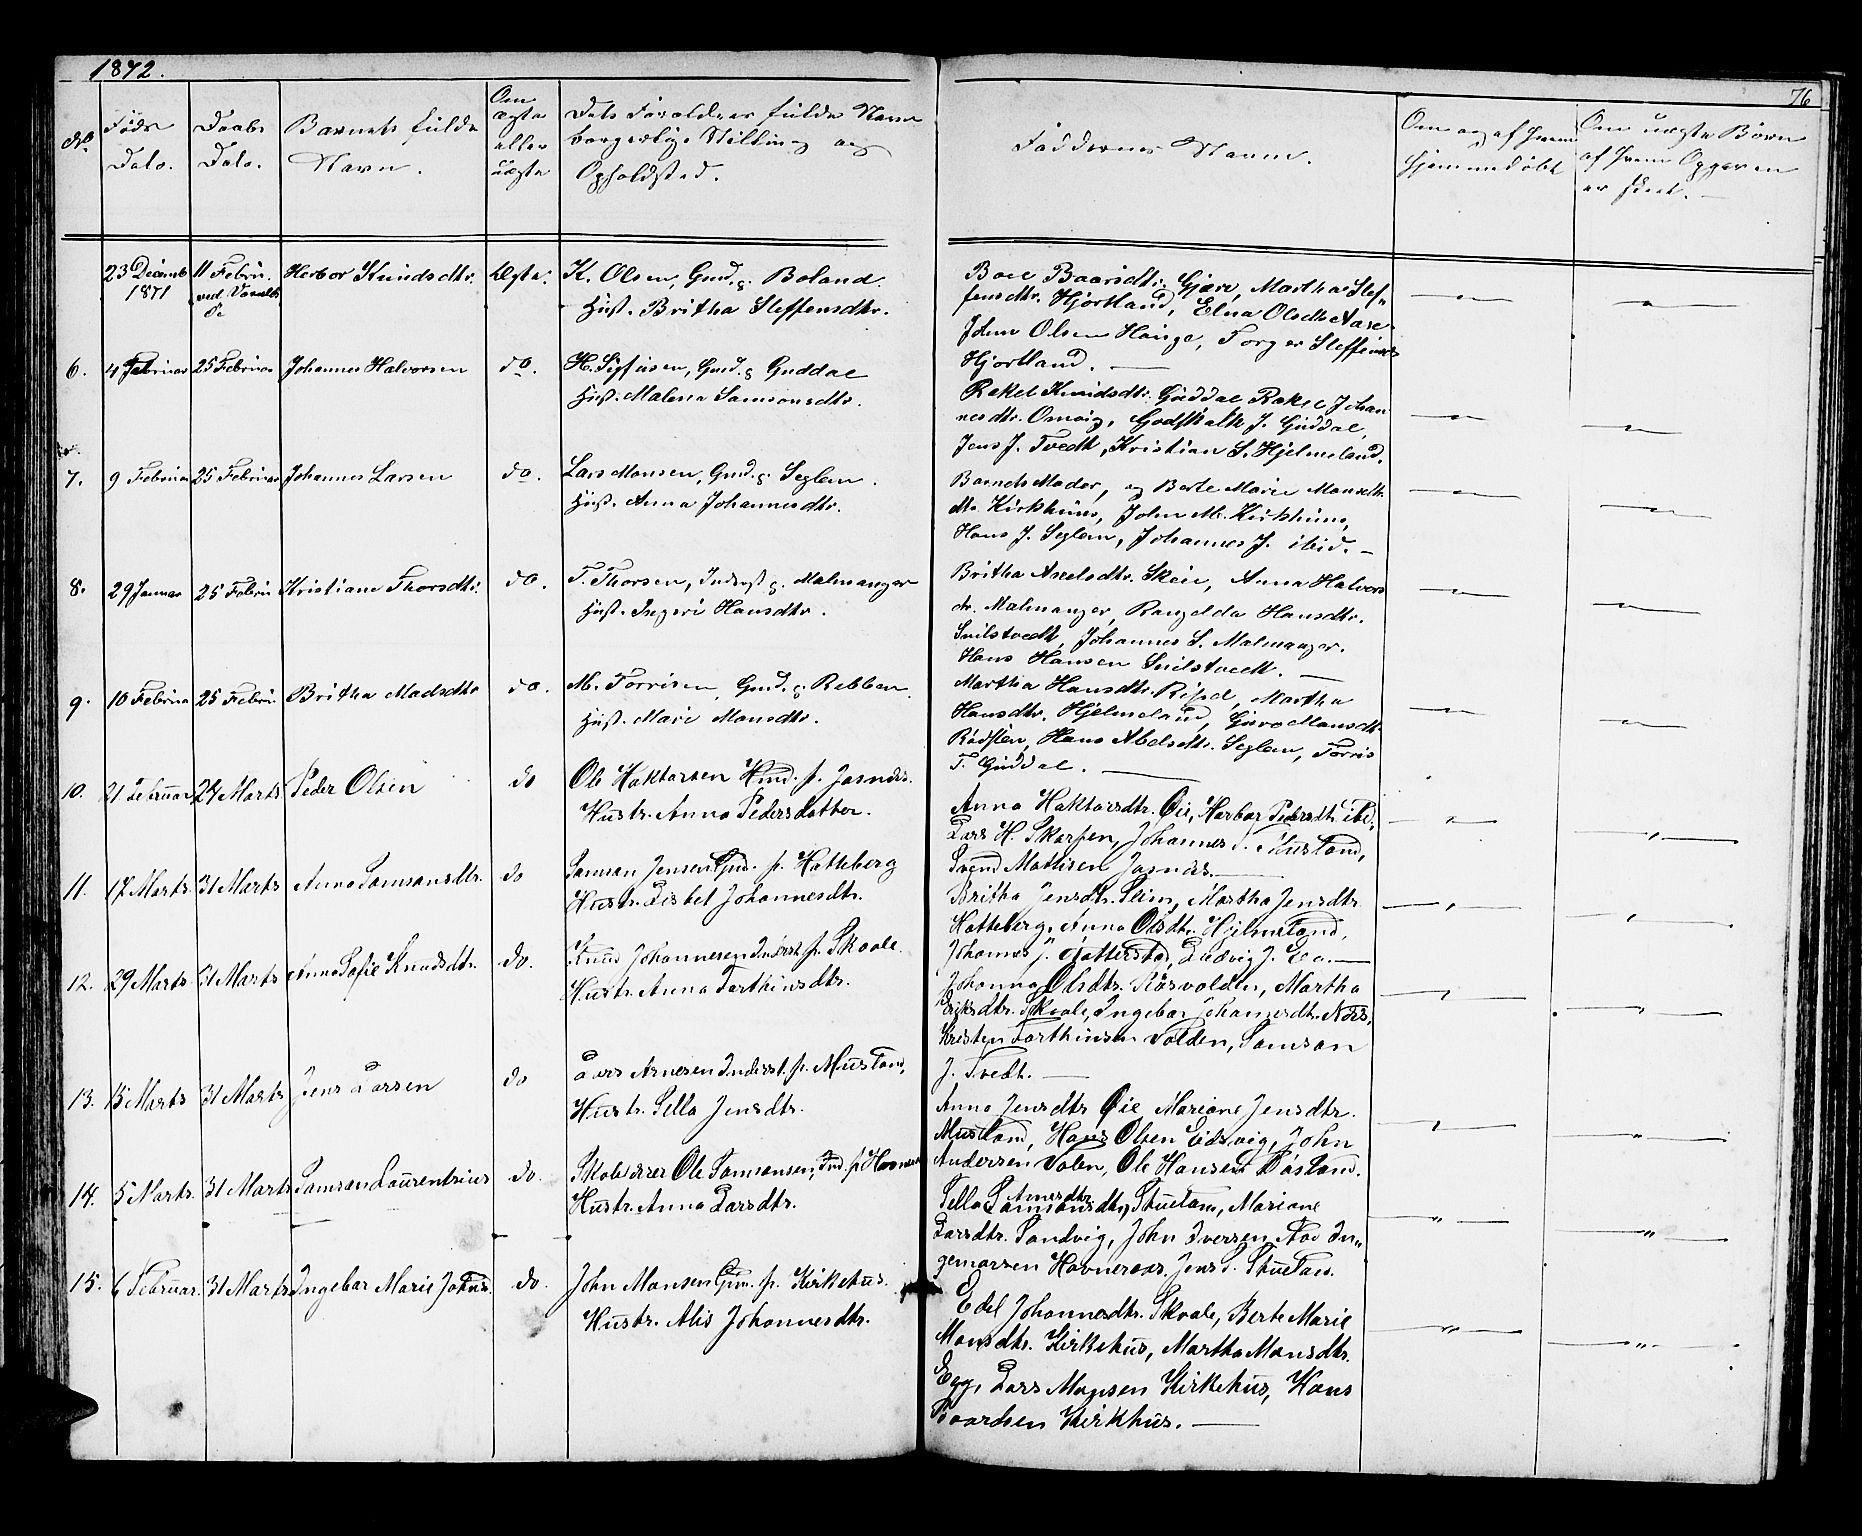 1872.
76
No
Føds Dato.
Daabs Dato.
Barnets fulde Navn.
Om ægte eller uægte
Dets Forældres fulde Navn borgerlige Stilling og Opholdsted.
Faddernes Navne.
Om og af hvem hjemmedøbt
Om uægte Børn af hvem Opgaven er skeet.
23 Decemb 1871
11 Febru.
Herbor Knudsdtr.
Ægte.
K. Olsen, Gmd. g. Boland.
Hust. Britha Steffensdtr.
Boel Baarsdtr. Gjære, Martha Stef-
fensdtr. Hjortland, Elna Olsdtr Aase
John Olsen Hauge, Torger Steffensen
Hjortland.
6.
4 Februar
25 Februar
Johannes Halvorsen
do.
H. Sjefusen, Gmd. g Guddal
Hust. Malena Samsonsdtr.
Rakel Knudsdtr. Guddal Rakel Johan
nesdtr. Omvig, Godskalk J. Guddal,
Jens J. Tvedt, Kristian S. Hjelmeland.
7.
9 Februa
25 Februar
Johannes Larsen
do.
Lars Monsen, Gmd. g Seglem.
Hust. Anna Johannesdtr.
Barnets Moder, og Berte Marie Monsdtr.
Kirkhuus, John M. Kirkhuus,
Hans J. Seglem, Johannes J. ibid.
8.
29 Januar
25 Febru
Kristiane Thorsdtr.
do.
T. Thorsen, Inderst g. Malmanger
Hust. Ingeri Hansdtr.
Britha Axelsdtr. Skeie, Anna Halvors
dr. Malmanger, Rangelda Hansdtr.
Snilstvedt, Johannes S. Malmanger.
Hans Hansen Snilstvedt.
9.
10 Februa
25 Febru.
Britha Madsdtr
do.
M. Torrisen, Gmd. g Rebben.
Hust. Mari Monsdtr.
Martha Hansdtr. Martha
Hansdtr. Hjelmeland, Guro Monsdtr.
Hans Abelsdtr. Seglem, Torris
T. Guddal.
10.
21 Februar
24 Marts
Peder Olsen
do
Ole Haktorsen Hmd. p. Jasnæs.
Hustr. Anna Pedersdatter.
Anna Haktorsdtr. Øie, Herbor Pedersdtr. ibd,
Lars H. Skarpen, Johannes Musland,
Svend Mathisen Jasnæs.
11.
17 Marts
31 Marts
Anna Samsonsdtr.
do
Samson Jensen Gmd. p. Hatteberg
Hustr. Lisbet Johannesdtr.
Britha Jensdtr. Seim, Martha Jensdtr.
Hatteberg, Anna Olsdtr. Hjelmeland,
Johannes J. Nattersta, Ludvig J. Ea.
12.
29 Marts
31 Marts
Anna Sofie Knudsdtr.
do.
Knud Johannesen Inderst p. Skaale.
Hustr. Anna Torthinsdtr.
Johanna Olsdtr. Røsvolden, Martha
Eriksdtr. Skaale, Ingebor Johannesdtr. Næs,
Kristen Torthinsen Volden, Samson
J. Tvedt.
13.
15 Marts
31 Marts
Jens Larsen
do
Lars Arnesen Inderst. p. Musland,
Hustr. Sella Jensdtr.
Anna Jensdtr Øie Mariane Jensdtr.
Musland, Hans Olsen Eidsvig, John
Andersen Valen, Ole Hansen Døsland.
14.
5 Marts
31 Marts
Samson Laurentzius
do.
Skolelærer Ole Samsonsen, Ind. p Havneraas
Hustr. Anna Larsdtr.
Arnesdtr.
Sella Samsonsdtr, Stueland, Mariane
Larsdtr. Sandvig, John Iversen Aae In-
gemarsen Havneraas. Jens S. Stueland.
15.
6 Februar.
31 Marts
Ingebor Marie Johns.
do.
John Monsen Gm. p. Kirkehus.
Hustr. Alis Johannesdtr.
Edel Johannesdtr. Skaale, Berte Marie
Monsdtr. Kirkehus, Martha Monsdtr.
Egg, Lars Monsen Kirkehus, Hans
Baardsen Kirkhus.